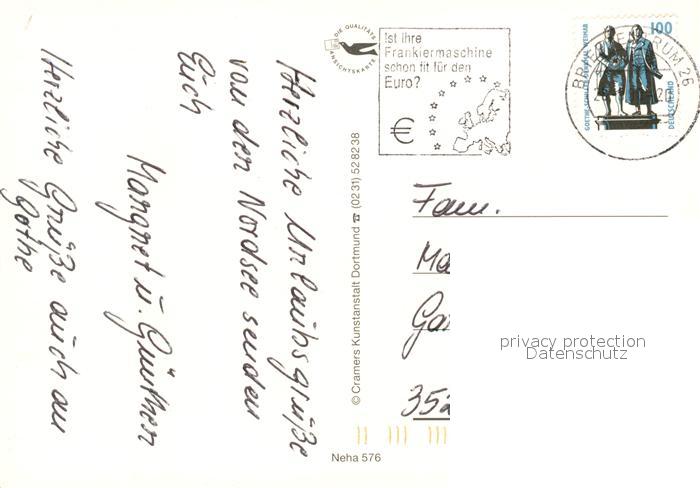 Herzliche Urlaubsgrüße
von der Nordsee senden
Euch
Margret u. Günther
Herzliche Grüße auch an
Gothe
DIE QUALITÄTS
ANSICHTSKARTE
© Cramers Kunstanstalt Dortmund ☎ (0231) 528238
Neha 576
Ist Ihre
Frankiermaschine
schon fit für den
Euro?
€
BRIEFZENTRUM 26
100
GOETHE-SCHILLER-DENKMAL WEIMAR
DEUTSCHLAND
Fam.
Ma
Ga
352
privacy protection
Datenschutz